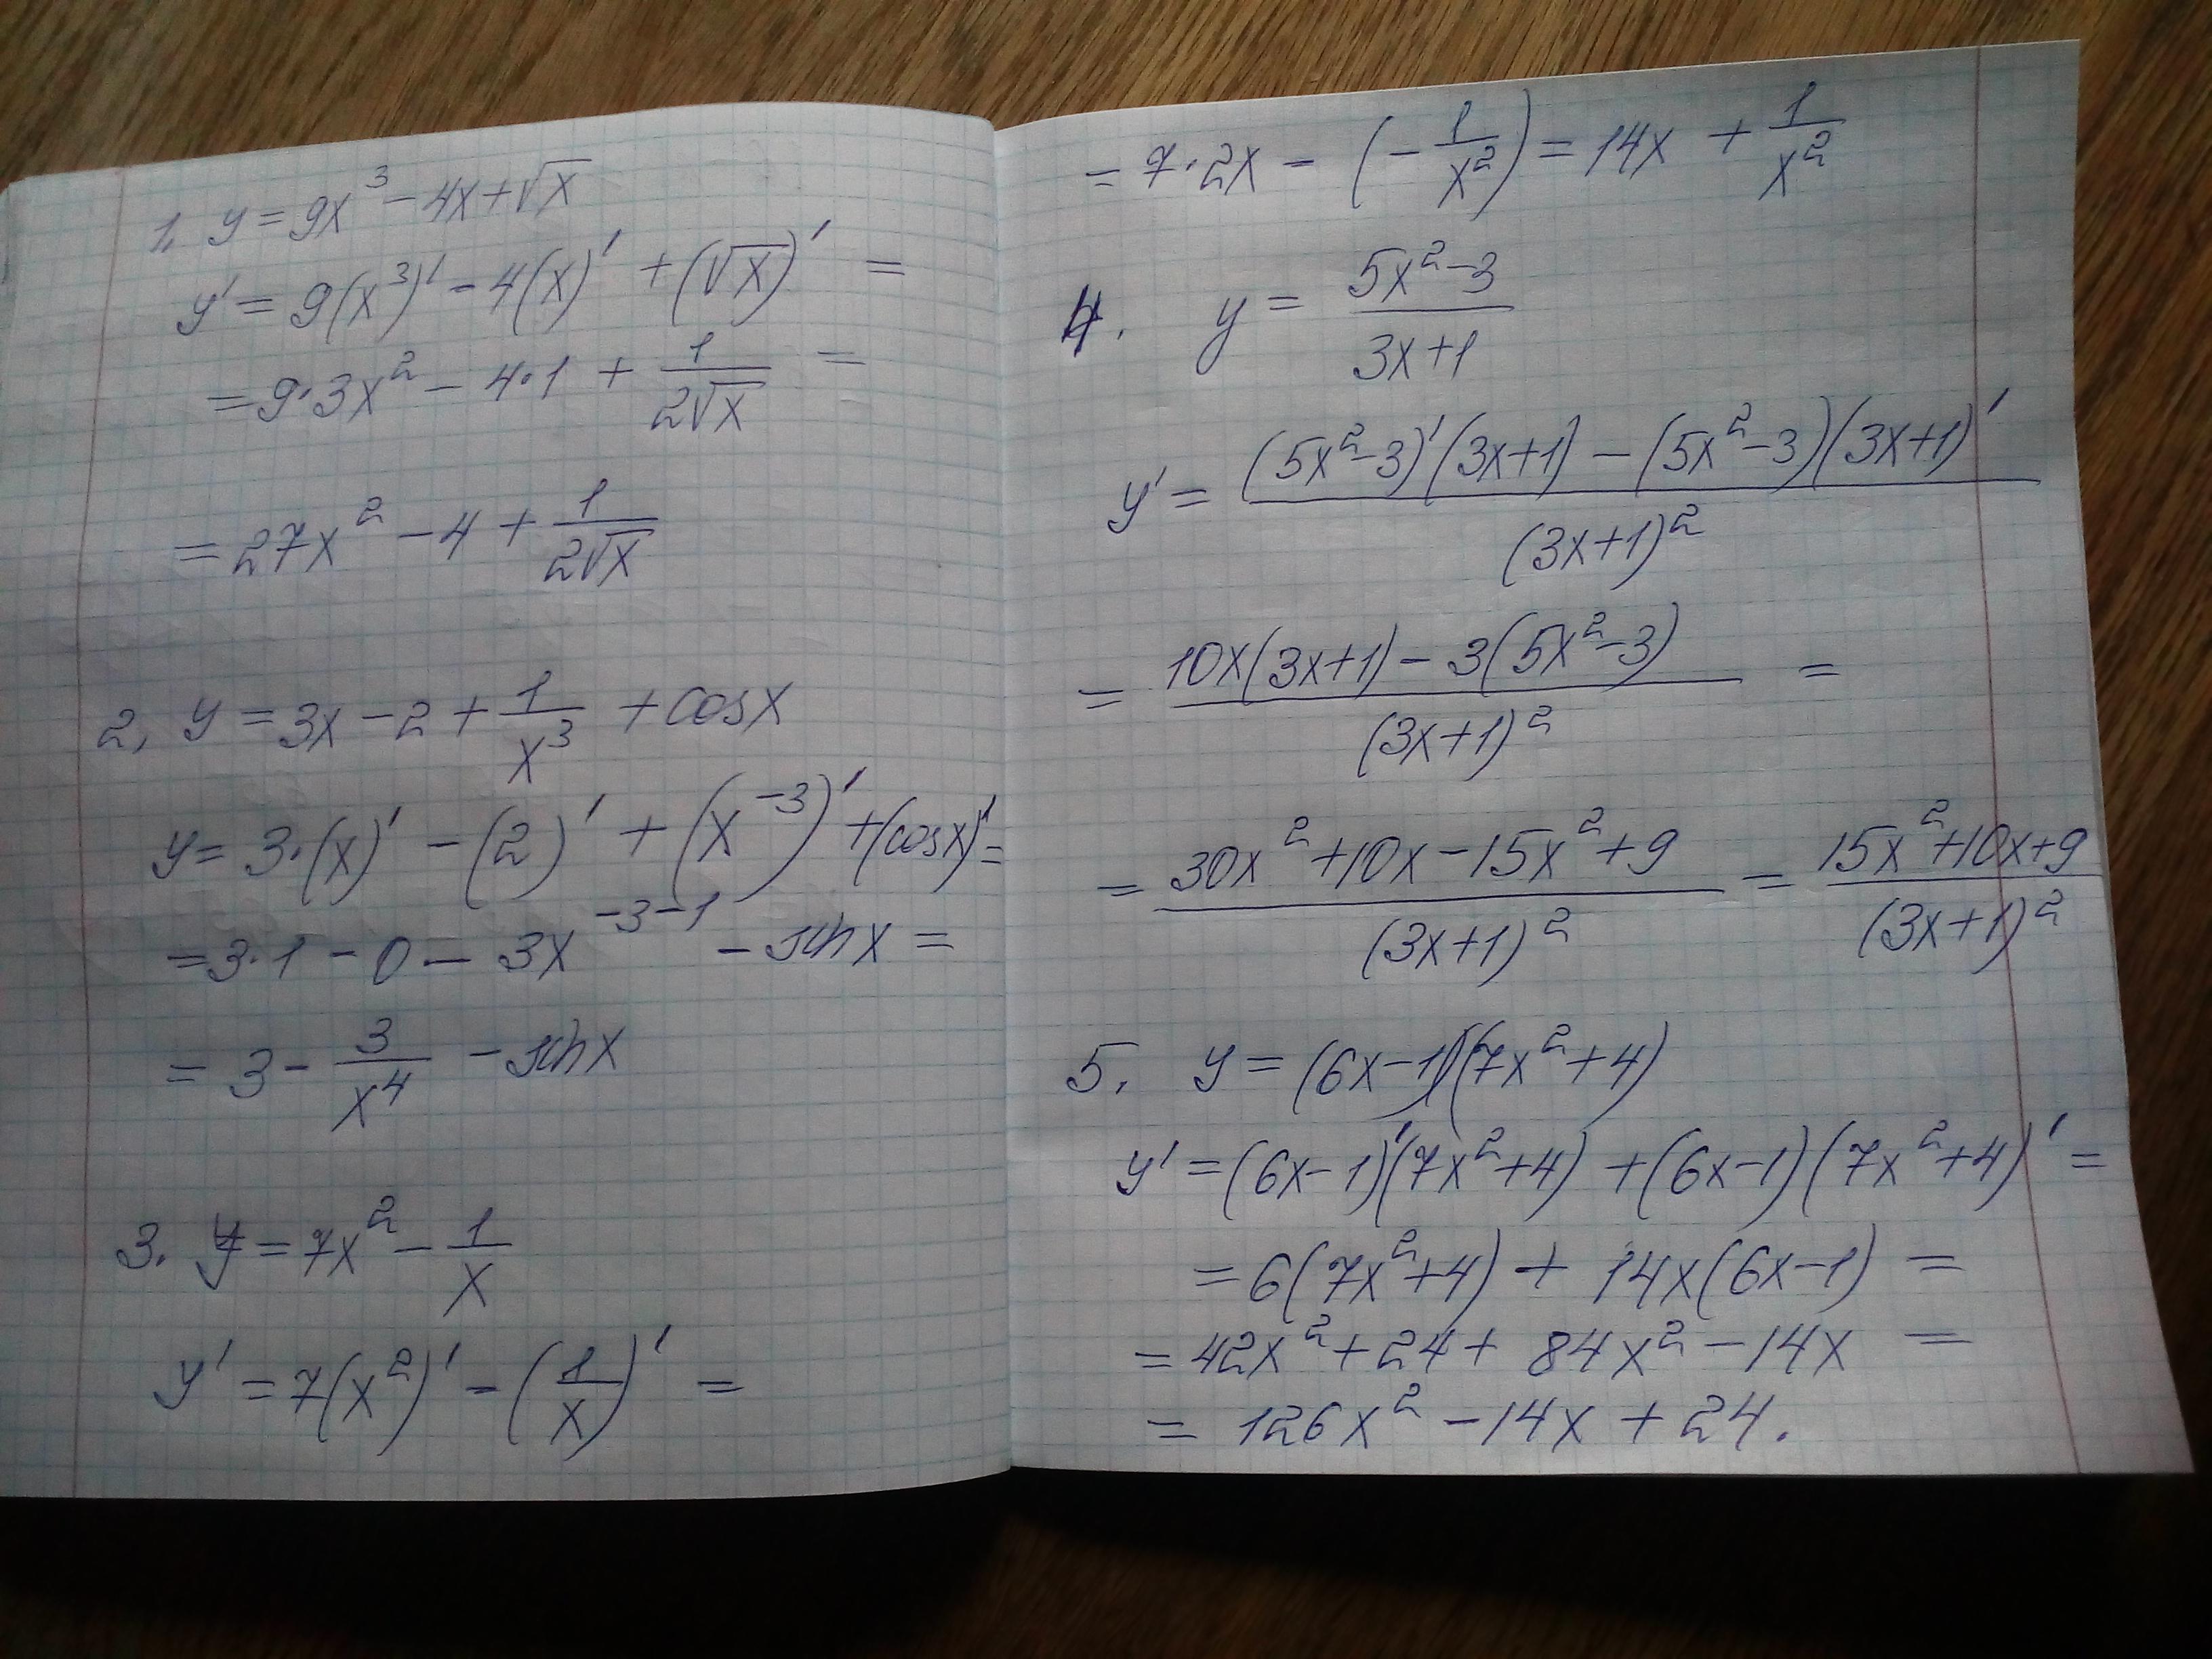 1. y = 9x³ - 4x + √x
y' = 9(x³)' - 4(x)' + (√x)' =
= 9·3x² - 4·1 + 1/(2√x) =
= 27x² - 4 + 1/(2√x)
2. y = 3x - 2 + 1/x³ + cosx
y = 3·(x)' - (2)' + (x⁻³)' + (cosx)' =
= 3·1 - 0 - 3x⁻³⁻¹ - sinx =
= 3 - 3/x⁴ - sinx
3. y = 7x² - 1/x
y' = 7(x²)' - (1/x)' =
= 7·2x - (-1/x²) = 14x + 1/x²
4. y = (5x²-3)/(3x+1)
y' = ((5x²-3)'(3x+1) - (5x²-3)(3x+1)')/(3x+1)²
= (10x(3x+1) - 3(5x²-3))/(3x+1)² =
= (30x²+10x-15x²+9)/(3x+1)² = (15x²+10x+9)/(3x+1)²
5. y = (6x-1)(7x²+4)
y' = (6x-1)'(7x²+4) + (6x-1)(7x²+4)' =
= 6(7x²+4) + 14x(6x-1) =
= 42x² + 24 + 84x² - 14x =
= 126x² - 14x + 24.